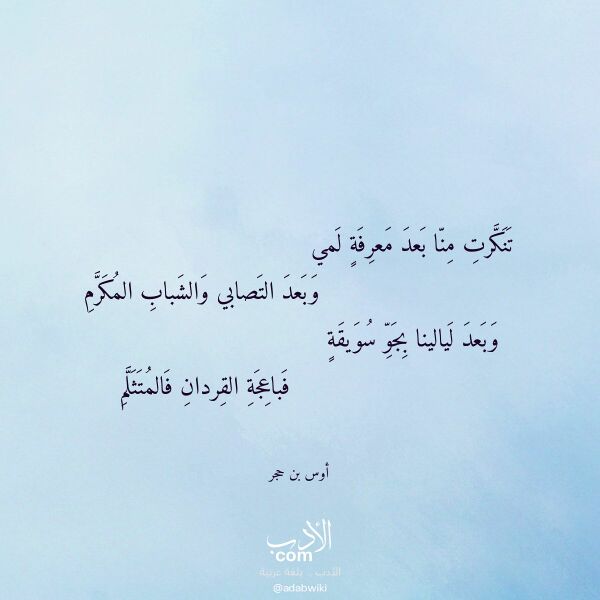 تَنَكَّرتِ مِنّا بَعدَ مَعرِفَةٍ لَمي
وَبَعدَ التَصابي وَالشَبابِ المُكَرَّمِ
وَبَعدَ لَيالينا بِجَوِّ سُوَيقَةٍ
فَباعِجَةِ القِردانِ فَالمُتَثَلَّمِ
أوس بن حجر
الأدب
com
الأدب .. بلغة عربية
@adabwiki